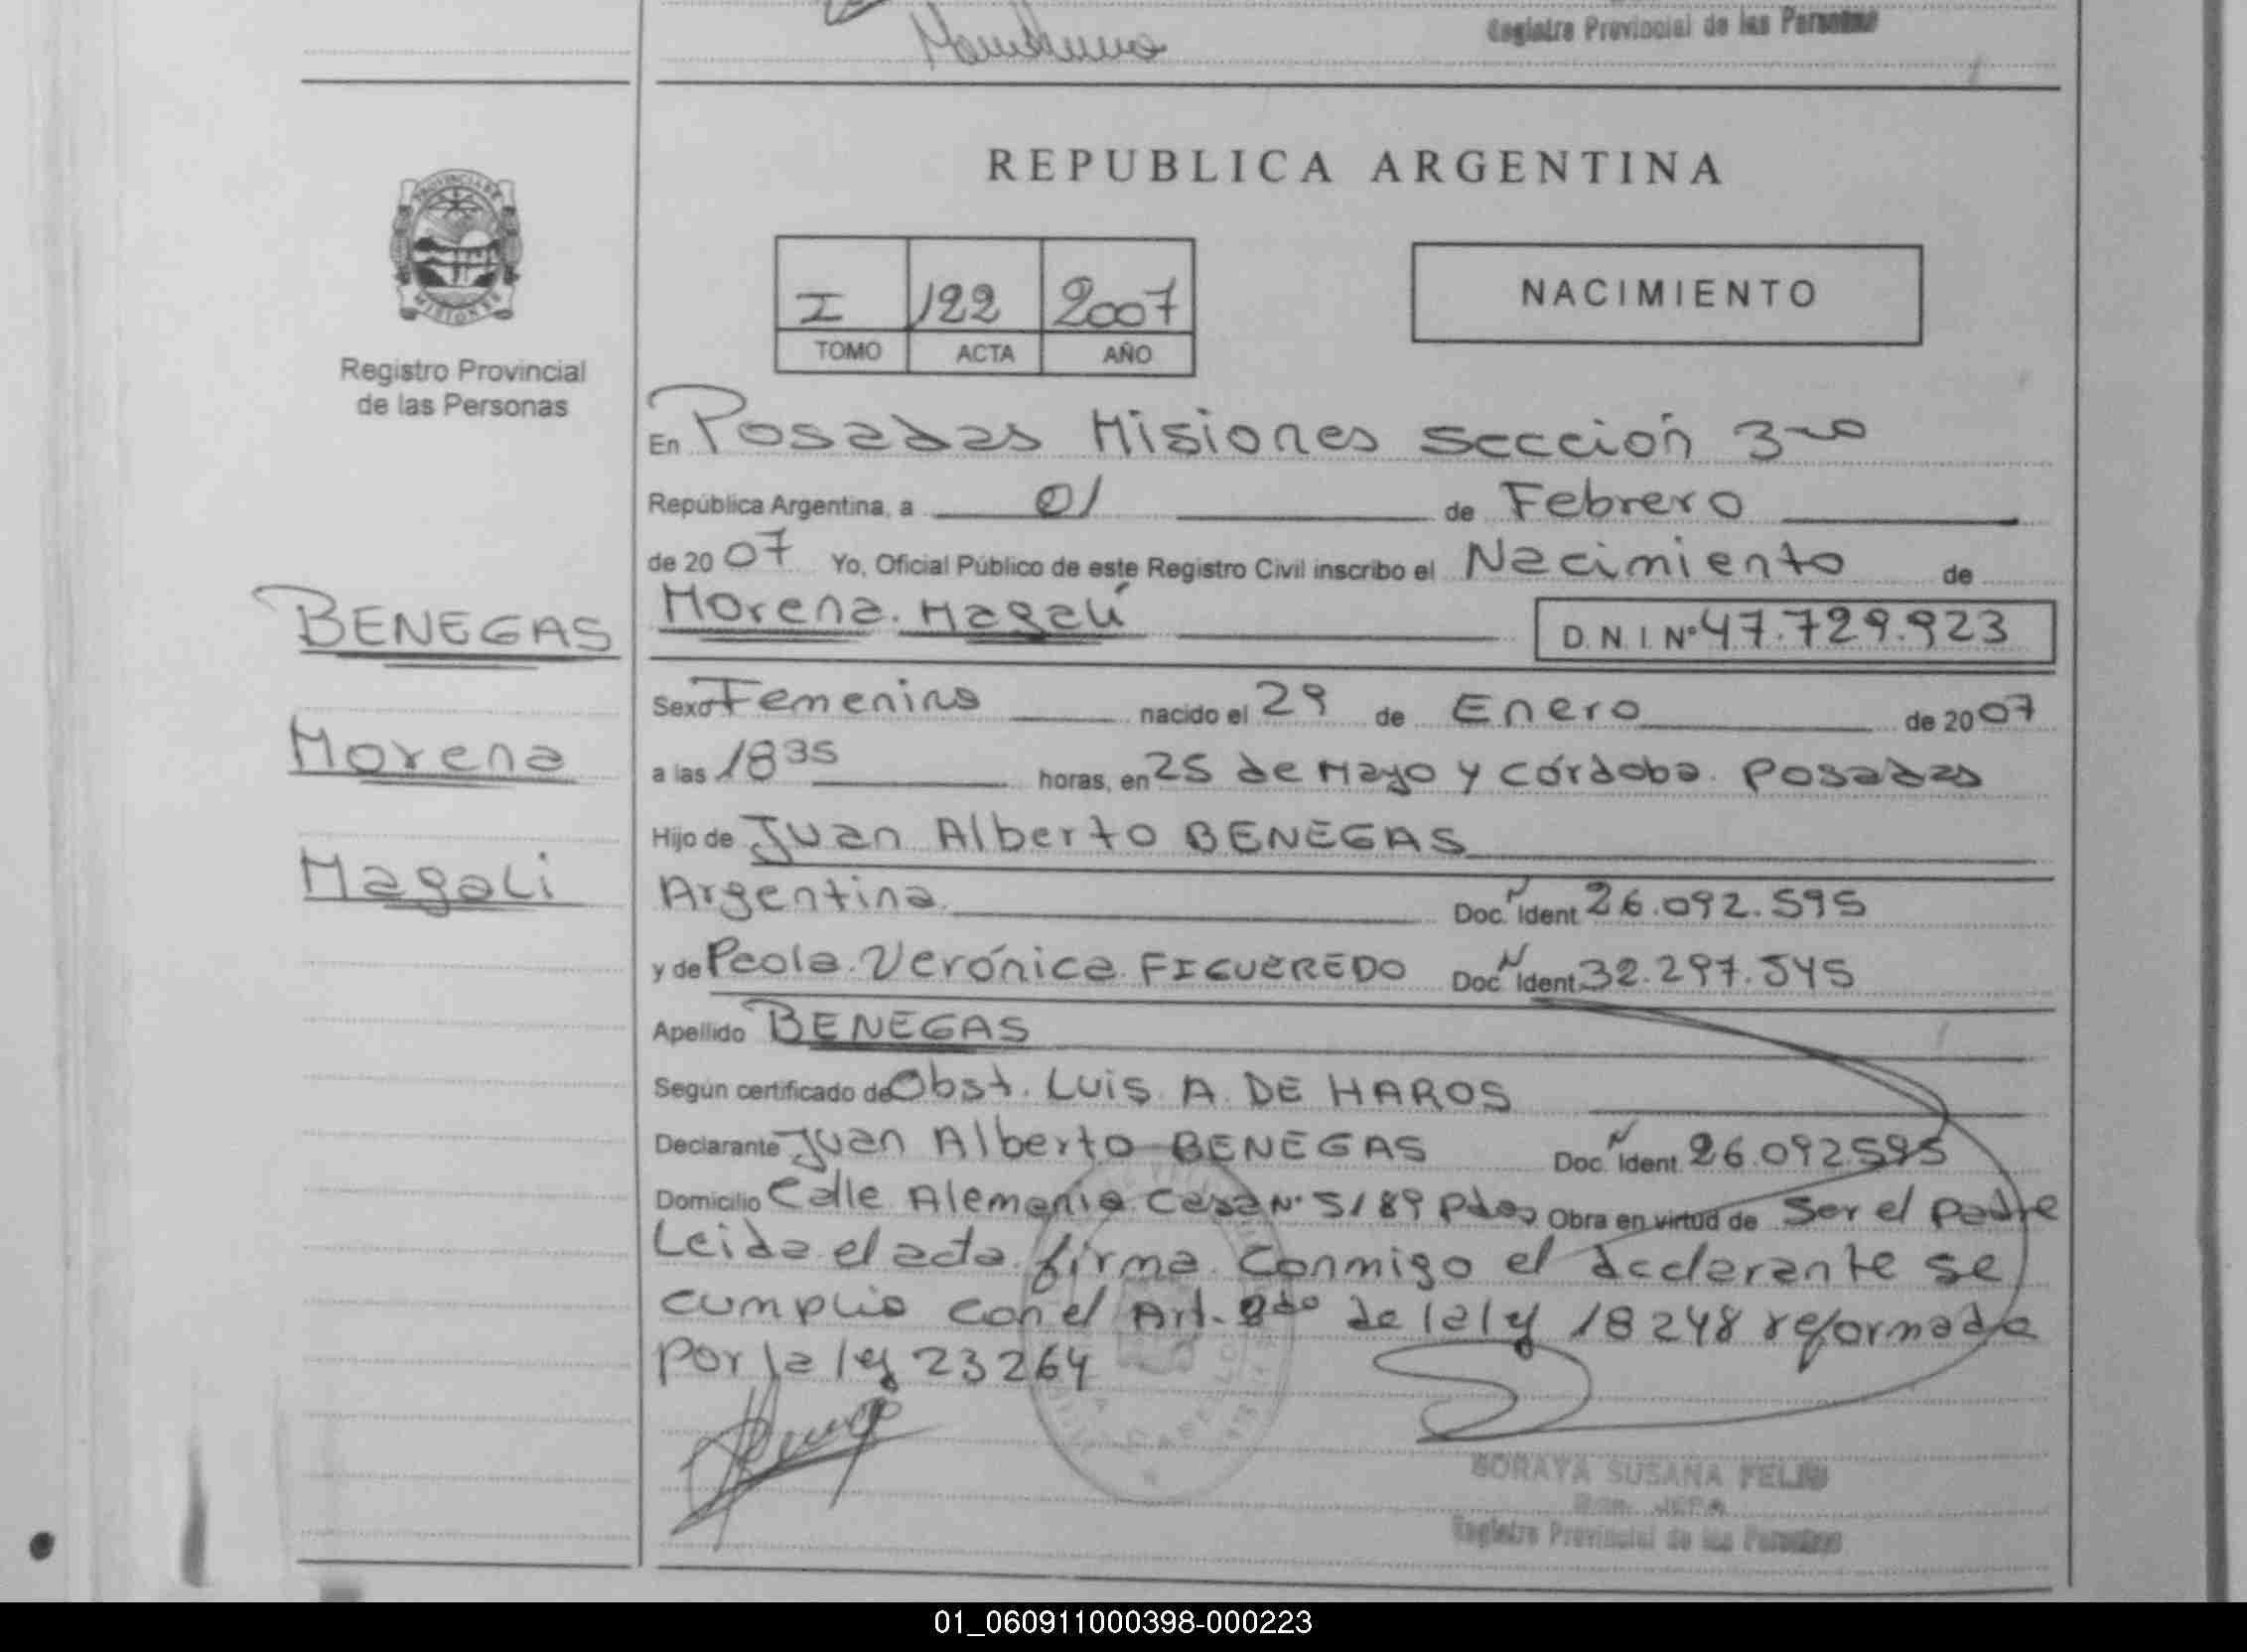 Registro Provincial de las Personas
REPUBLICA ARGENTINA
PROVINCIA DE
MISIONES
I 122 2007
TOMO ACTA AÑO
NACIMIENTO
Registro Provincial
de las Personas
En Posadas Misiones sección 3ra
República Argentina, a 01 de Febrero
de 2007 Yo, Oficial Público de este Registro Civil inscribo el Nacimiento de
BENEGAS
Morena
Magali
Morena Magalí D.N.I. Nº 47.729.923
Sexo Femenino nacido el 29 de Enero de 2007
a las 18 35 horas, en 25 de Mayo y Córdoba. Posadas
Hijo de Juan Alberto BENEGAS
Argentina Doc. N Ident 26.092.595
y de Paola Verónica FIGUEREDO Doc. N Ident. 32.297.545
Apellido BENEGAS
Según certificado de Obst. Luis A. DE HAROS
Declarante Juan Alberto BENEGAS Doc. N Ident. 26.092595
Domicilio Calle Alemania Casa Nº 5189 Pdas Obra en virtud de Ser el padre
Leida el acta firma Conmigo el declarante se
cumplio con el Art. 2do de la ley 18248 reformada
por la ley 23264
SORAYA SUSANA FELIU
Registro Provincial de las Personas
01_060911000398-000223